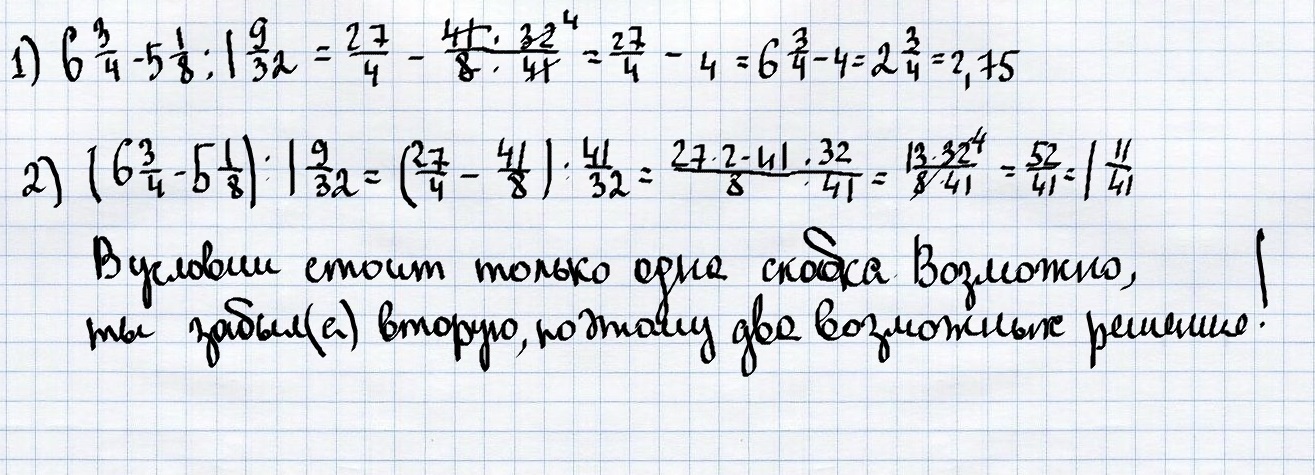 1) 6 3/4 - 5 1/8 : 1 9/32 = 27/4 - 41 · 32 4/8 · 41 = 27/4 - 4 = 6 3/4 - 4 = 2 3/4 = 2,75
2) (6 3/4 - 5 1/8) : 1 9/32 = (27/4 - 41/8) : 41/32 = 27·2-41/8 · 32/41 = 13·32 4/8·41 = 52/41 = 1 11/41
В условии стоит только одна скобка Возможно,
ты забыл(а) вторую, поэтому два возможных решения!